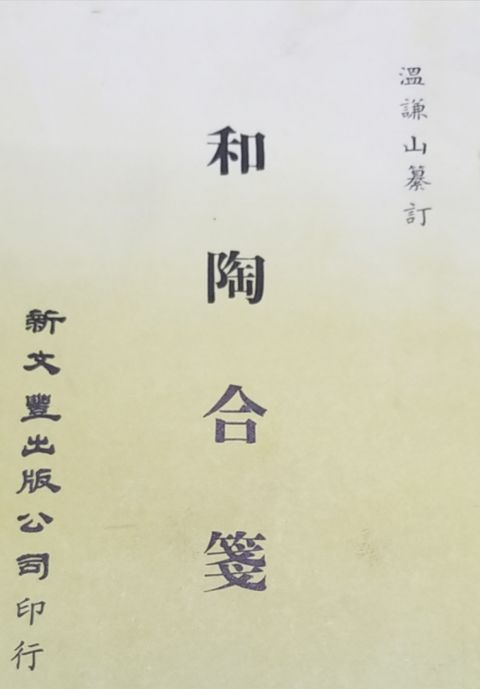 溫謙山纂訂
和陶合箋
新文豐出版公司印行